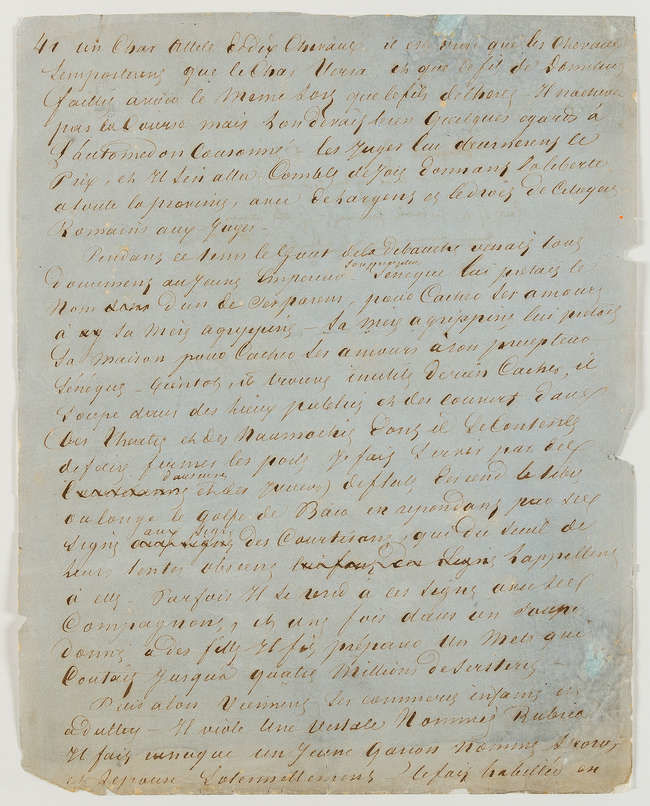 41 un Char Attelé de dix Chevaux il en vrai que les Chevaux
l'emporterent que le Char Versa et que le fils de Domitius
faillit avoir le même sort que le fils de thesée Il n'acheva
pas la Course mais l'on devait bien quelques égards à
l'automedon Couronné les Juges lui decernerent le
Prix, et Il s'en alla Comblé de Joie donnant la liberté
a toute la province, avec de l'argent et le droit de Citoyens
Romains aux Juges -
Pendant ce tems le Gout de la Debauche venait tout
Doucement au Jeune Empereur Sénèque lui pretait le
Nom d'un de ses parens, pour Cacher ses amours
à sa Mère agrippine - Sa Mère agrippine lui pretait
Sa Maison pour Cacher ses amours à son precepteur
Sénèque - bientot, il trouva inutile de rien Cacher, il
Soupe dans des lieux publics et à des couvert dans
des theatres et des Naumachies dont il se Contente
de faire fermer les portes Se fait Servir par des
et des Joueuses de flute descend le tibre
ou longe le Golfe de Baia en repondant par des
Signes aux signes des Courtisanes, qui du Seuil de
leurs tentes obscenes l'appellent
à elles - Parfois Il se rend à ces signes avec ses
Compagnons, et une fois dans un Souper
donné à des filles Il fit préparer un Mets qui
Coutait Jusqu'a quatre Millions de Sesterces -
Puis alors Viennent les commerces infames et
adulteres - Il viole une Vestale Nommée Rubria
Il fait eunuque un Jeune Garcon Nommé Sporus
et l'epouse Solennellement - le fait habiller en